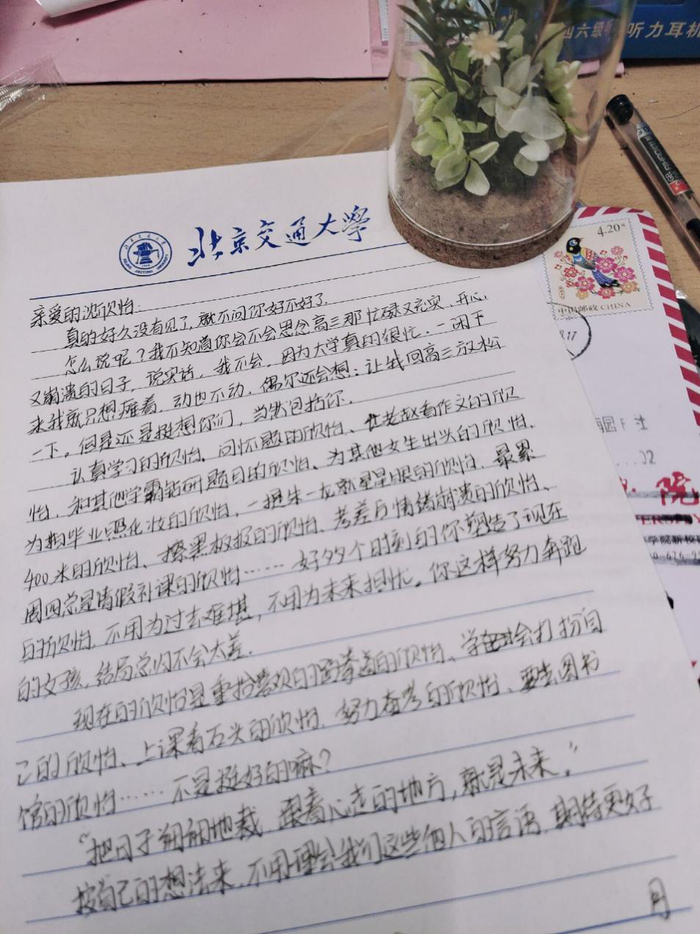 四六级 听力耳机
北京交通大学
4.20元
中国邮政 CHINA
亲爱的沈欣怡:
真的好久没有见了,就不问你好不好了.
怎么说呢?我不知道你会不会思念高三那忙碌又充实、开心
又崩溃的日子,说实话,我不会,因为大学真的很忙.一闲下
来我就只想瘫着,动也不动,偶尔还会想:让我回高三放松
一下.但是还是挺想你们,当然包括你.
认真学习的欣怡、问怀题的欣怡、在老赵看作文的欣
怡、和其他学霸钻研题目的欣怡、为其他女生出头的欣怡、
为拍毕业照化妆的欣怡、一提朱一龙就星星眼的欣怡、最累
400米的欣怡、擦黑板报的欣怡、考差后情绪崩溃的欣怡、
周四总是请假补课的欣怡……好多个时刻的你塑造了现在
的欣怡,不用为过去难堪,不用为未来担忧。你这样努力奔跑
的女孩,结局总归不会太差.
现在的欣怡是重拾喜欢的的欣怡、学会打扮自
己的欣怡、上课看石头的欣怡、努力查考的欣怡、要去图书
馆的欣怡……不是挺好的嘛?
“把日子翻翻地裁,跟着心走的地方,就是未来。”
按自己的想法来,不用理会我们这些他人的言语,期待更好
月